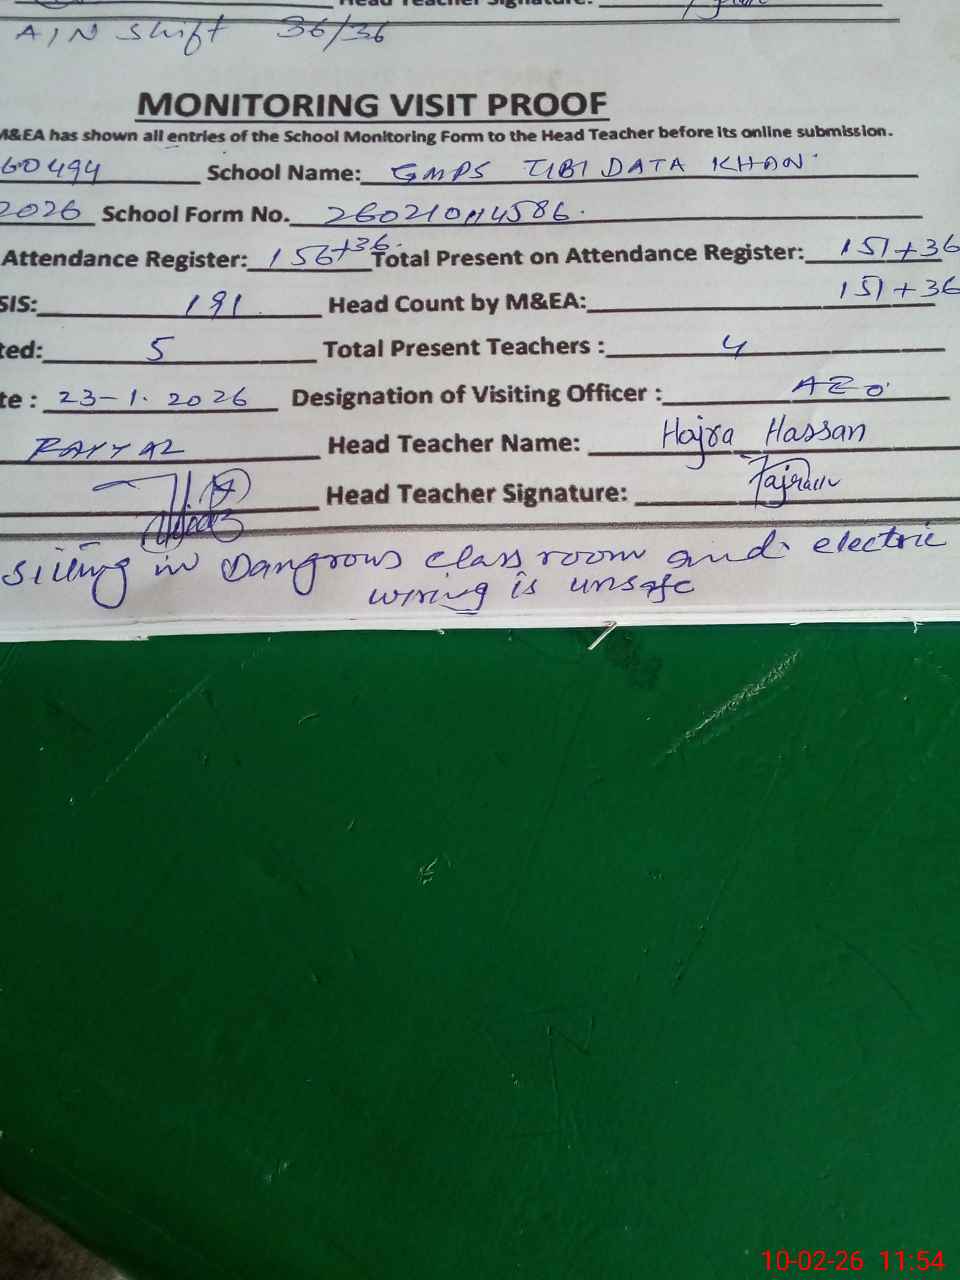 Head Teacher Signature:
A/N Shift 36/36
MONITORING VISIT PROOF
M&EA has shown all entries of the School Monitoring Form to the Head Teacher before its online submission.
60494 School Name: GMPS TIBI DATA KHAN
2026 School Form No. 260210114586
Attendance Register: 156+36 Total Present on Attendance Register: 151+36
SIS: 191 Head Count by M&EA: 151+36
ted: 5 Total Present Teachers : 4
te : 23-1. 2026 Designation of Visiting Officer : AEO
Head Teacher Name: Hajra Hassan
Head Teacher Signature:
sitting in Dangrous class room and electric
wiring is unsafe
10-02-26 11:54